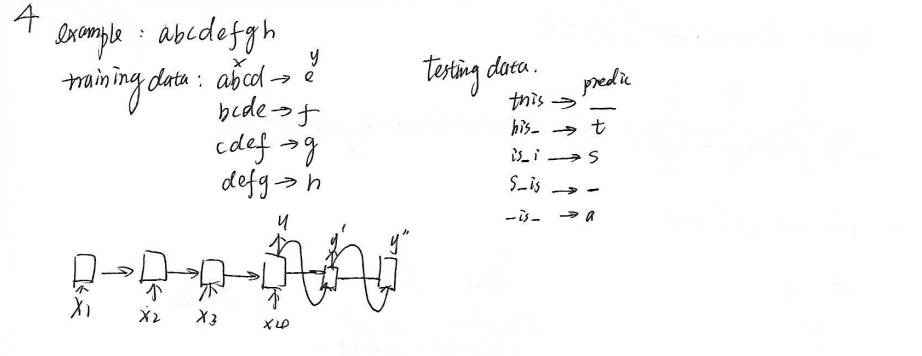 4
example : abcdefgh
training data : abcd → e
x
y
bcde → f
cdef → g
defg → h
Testing data.
predic
this → _
his_ → t
is_i → s
s_is → _
_is_ → a
y
y'
y"
x1
x2
x3
x4